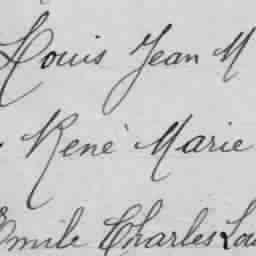 Louis Jean M
René Marie
Emile Charles Lou